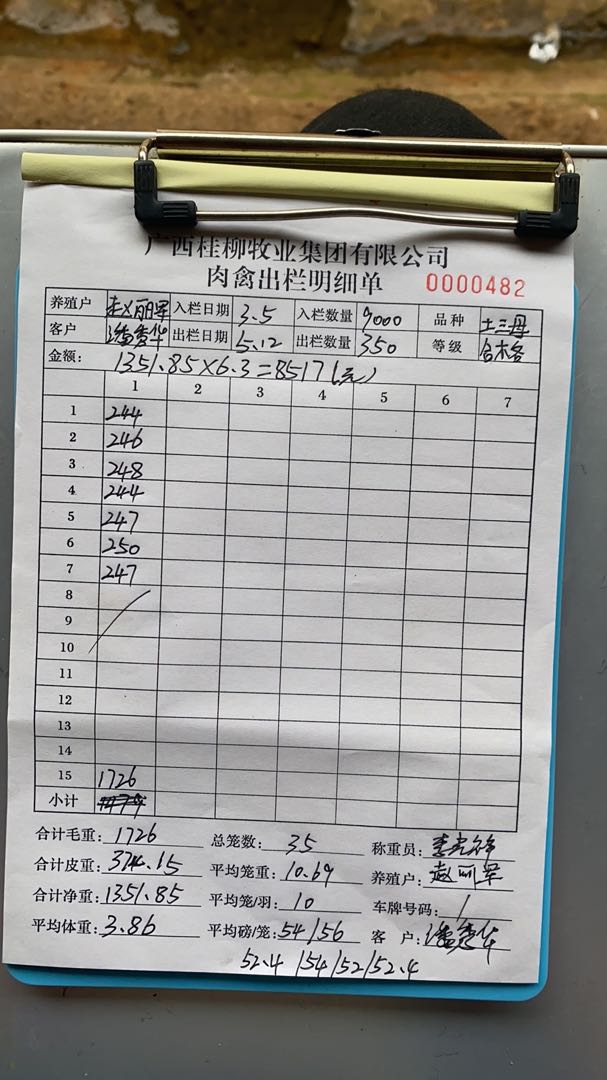 广西桂柳牧业集团有限公司
肉禽出栏明细单 0000482
养殖户 赵丽军 入栏日期 3.5 入栏数量 9000 品种 土三丹
客户 出栏日期 5.12 出栏数量 350 等级 合格
金额: 1351.85×6.3=8517(元)
1 2 3 4 5 6 7
1 244
2 246
3 248
4 244
5 247
6 250
7 247
8
9
10
11
12
13
14
15 1726
小计
合计毛重: 1726 总笼数: 35 称重员:
合计皮重: 374.15 平均笼重: 10.69 养殖户: 赵丽军
合计净重: 1351.85 平均笼/羽: 10 车牌号码: /
平均体重: 3.86 平均磅/笼: 54/56 客户:
52.4/54/52/52.4